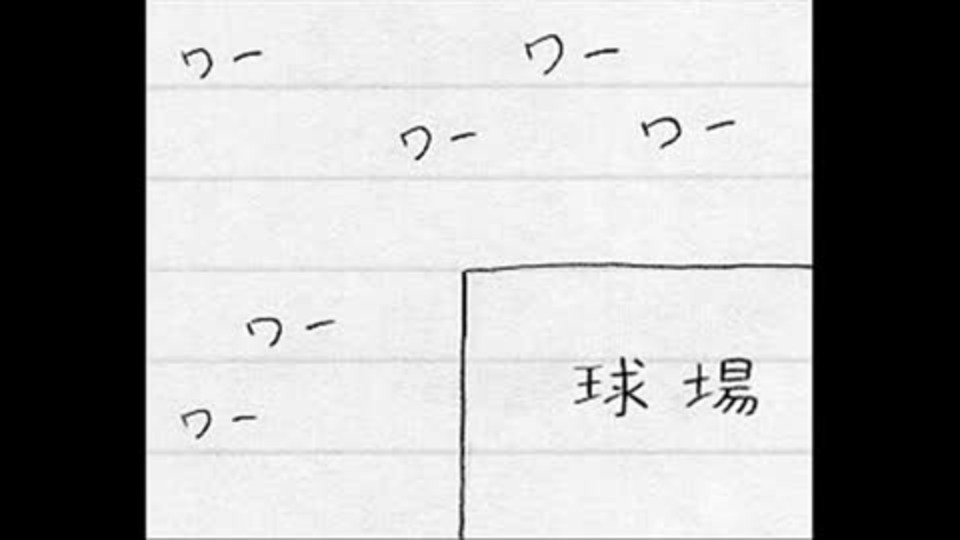 ワー
ワー
ワー
ワー
ワー
球場
ワー